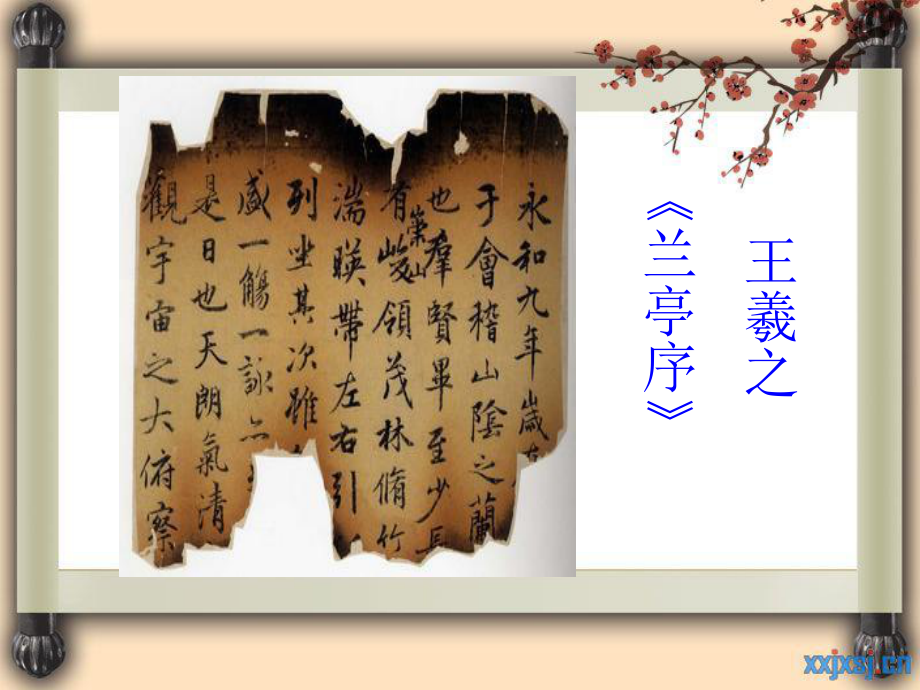 王羲之
《兰亭序》
永和九年歲在
于會稽山陰之蘭
也羣賢畢至少長
有崇山峻領茂林脩竹
湍暎帶左右引
列坐其次雖
盛一觴一詠亦
是日也天朗氣清
觀宇宙之大俯察
xxjxsj.cn